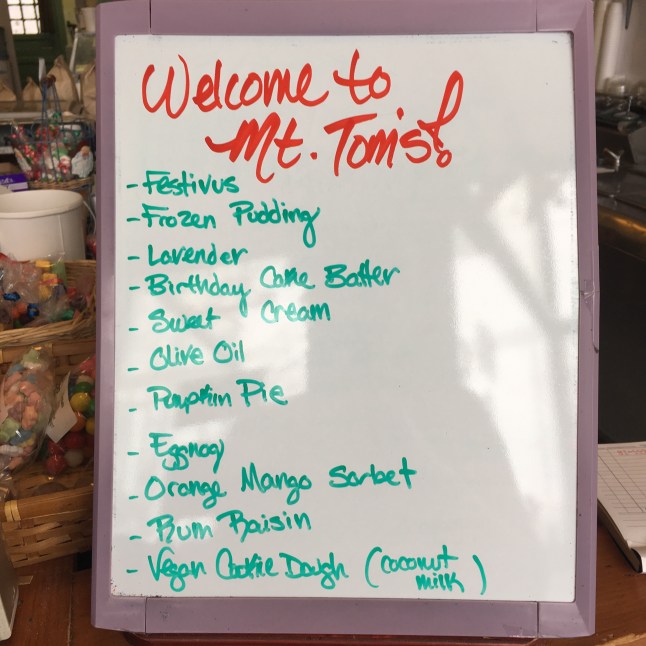 Welcome to
Mt. Tom's!
- Festivus
- Frozen Pudding
- Lavender
- Birthday Cake Batter
- Sweet Cream
- Olive Oil
- Pumpkin Pie
- Eggnog
- Orange Mango Sorbet
- Rum Raisin
- Vegan Cookie Dough (coconut
milk)